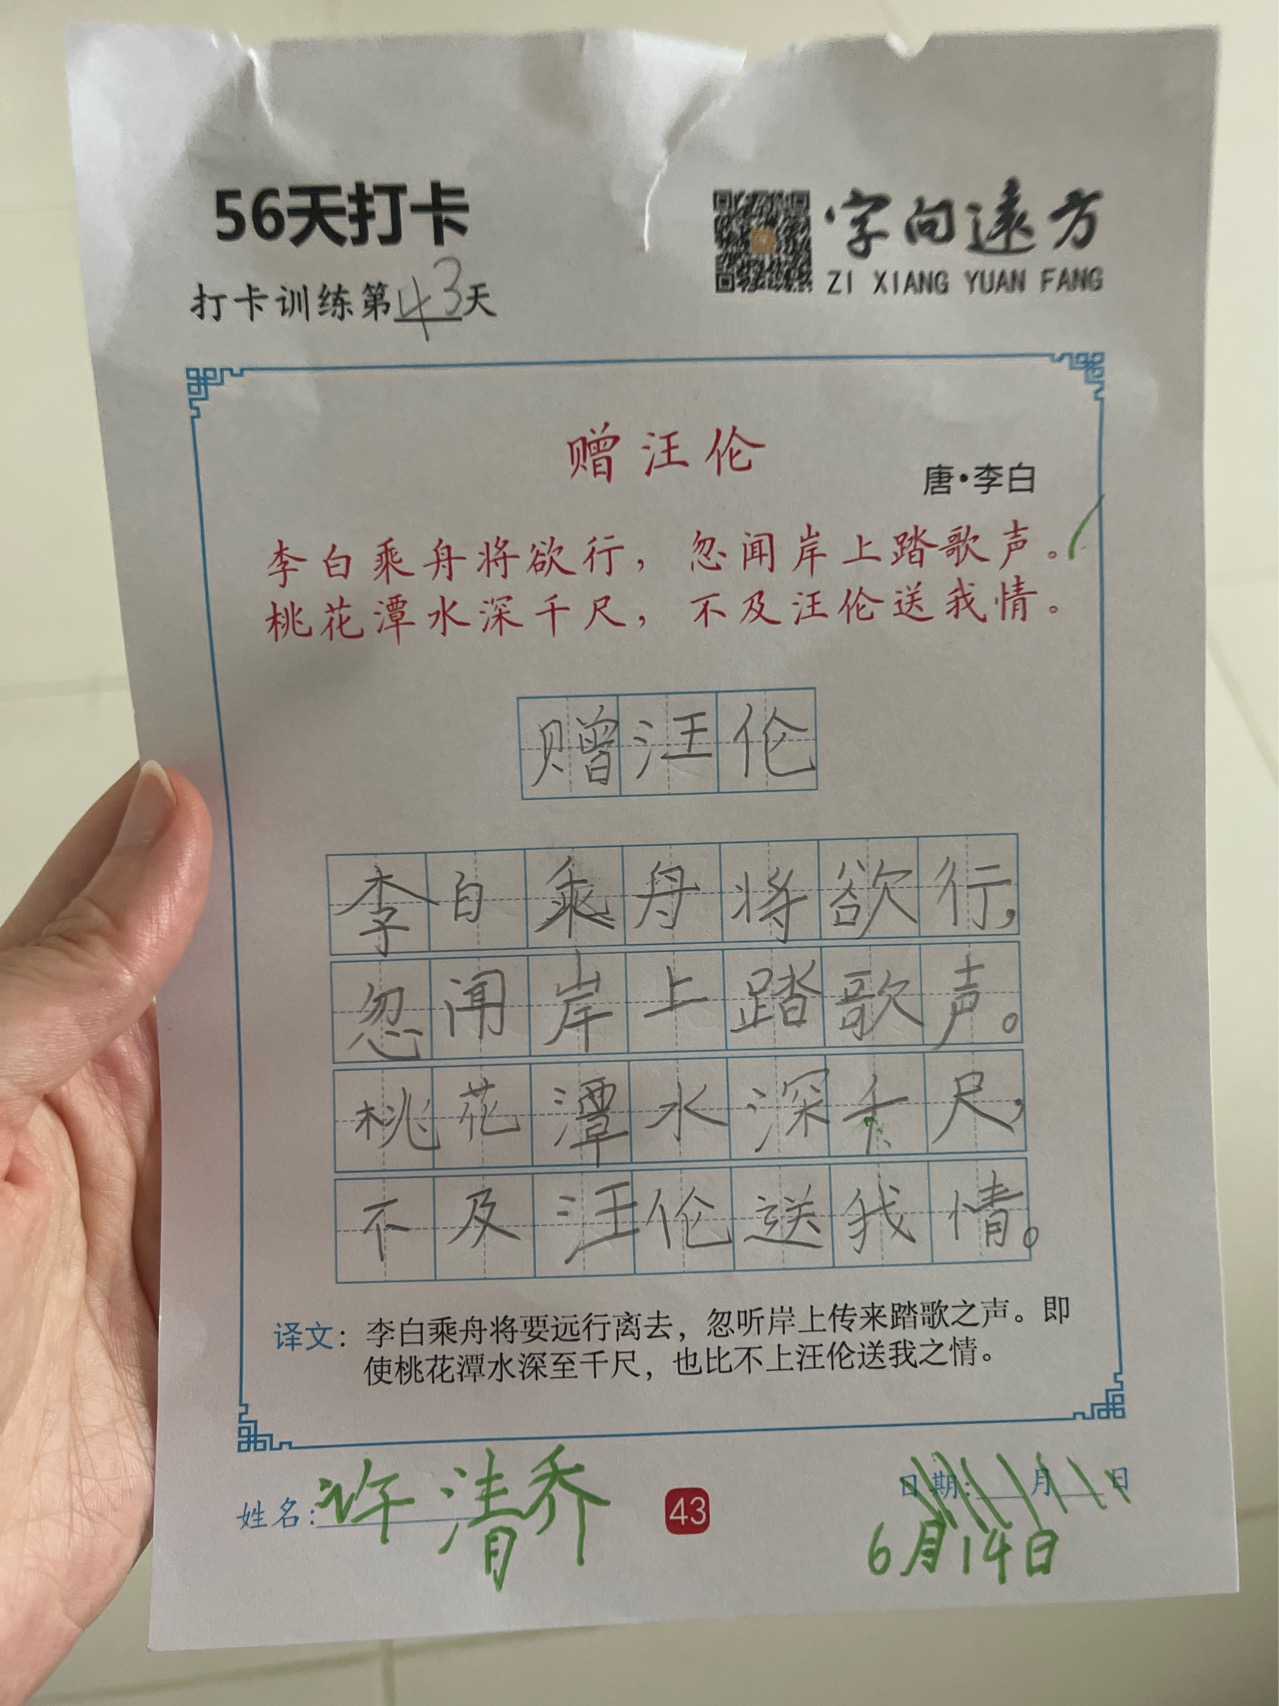 56天打卡
字向远方
ZI XIANG YUAN FANG
打卡训练第43天
赠汪伦
唐·李白
李白乘舟将欲行，忽闻岸上踏歌声。
桃花潭水深千尺，不及汪伦送我情。
赠汪伦
李白乘舟将欲行，
忽闻岸上踏歌声。
桃花潭水深千尺，
不及汪伦送我情。
译文：李白乘舟将要远行离去，忽听岸上传来踏歌之声。即
使桃花潭水深至千尺，也比不上汪伦送我之情。
姓名：许清乔
43
日期：　月　日
6月14日